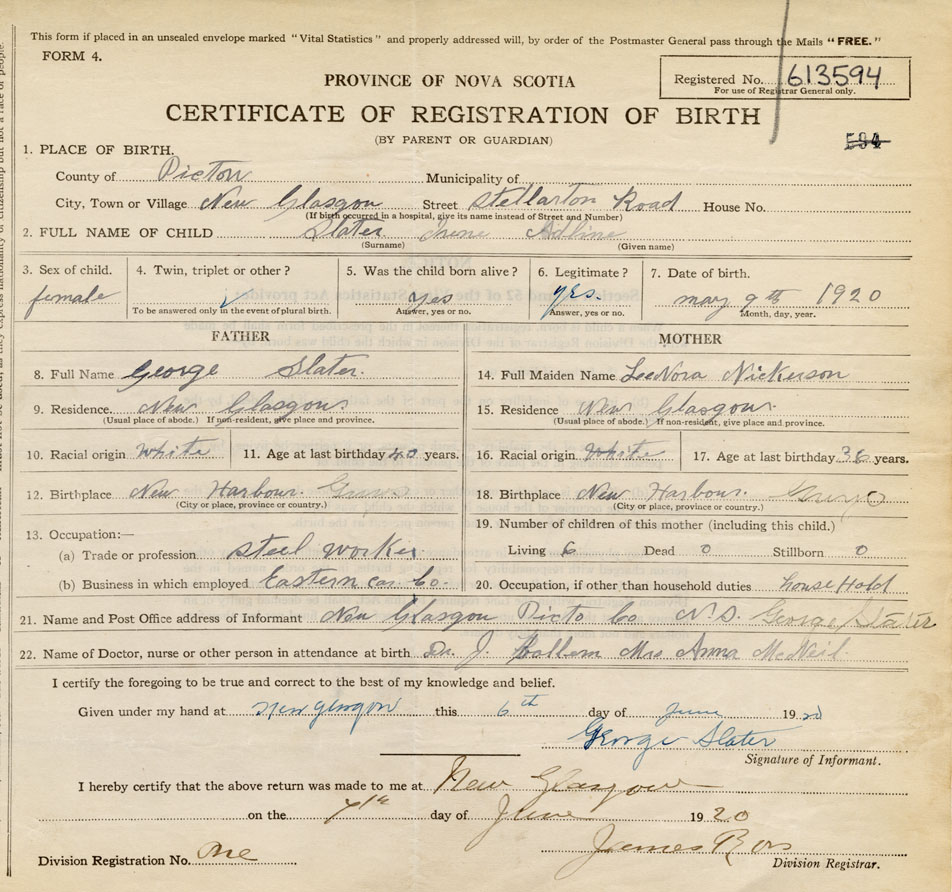 This form if placed in an unsealed envelope marked "Vital Statistics" and properly addressed will, by order of the Postmaster General pass through the Mails "FREE."
FORM 4.
PROVINCE OF NOVA SCOTIA
Registered No. 613594
For use of Registrar General only.
CERTIFICATE OF REGISTRATION OF BIRTH
(BY PARENT OR GUARDIAN)
1. PLACE OF BIRTH.
County of Pictou Municipality of
City, Town or Village New Glasgow Street Stellarton Road House No.
(If birth occurred in a hospital, give its name instead of Street and Number)
2. FULL NAME OF CHILD Slater Irene Adline
(Surname) (Given name)
3. Sex of child. 4. Twin, triplet or other? 5. Was the child born alive? 6. Legitimate? 7. Date of birth.
female yes yes. may 9th 1920
To be answered only in the event of plural birth. Answer, yes or no. Answer, yes or no. Month, day, year.
FATHER MOTHER
8. Full Name George Slater. 14. Full Maiden Name LeeNora Nickerson
9. Residence. New Glasgow 15. Residence New Glasgow.
(Usual place of abode.) If non-resident, give place and province. (Usual place of abode.) If non-resident, give place and province.
10. Racial origin White 11. Age at last birthday 40 years. 16. Racial origin White 17. Age at last birthday years.
12. Birthplace New Harbour. 18. Birthplace New Harbour.
(City or place, province or country.) (City or place, province or country.)
13. Occupation:— 19. Number of children of this mother (including this child.)
(a) Trade or profession steel worker Living 6 Dead 0 Stillborn 0
(b) Business in which employed Eastern car Co. 20. Occupation, if other than household duties house Hold
21. Name and Post Office address of Informant New Glasgow Picto Co N.S. George Slater
22. Name of Doctor, nurse or other person in attendance at birth Dr J. Mrs Anna McNeil.
I certify the foregoing to be true and correct to the best of my knowledge and belief.
Given under my hand at New Glasgow this 6th day of June 19
George Slater
Signature of Informant.
I hereby certify that the above return was made to me at New Glasgow
on the 7th day of June 1920
James
Division Registration No. One Division Registrar.